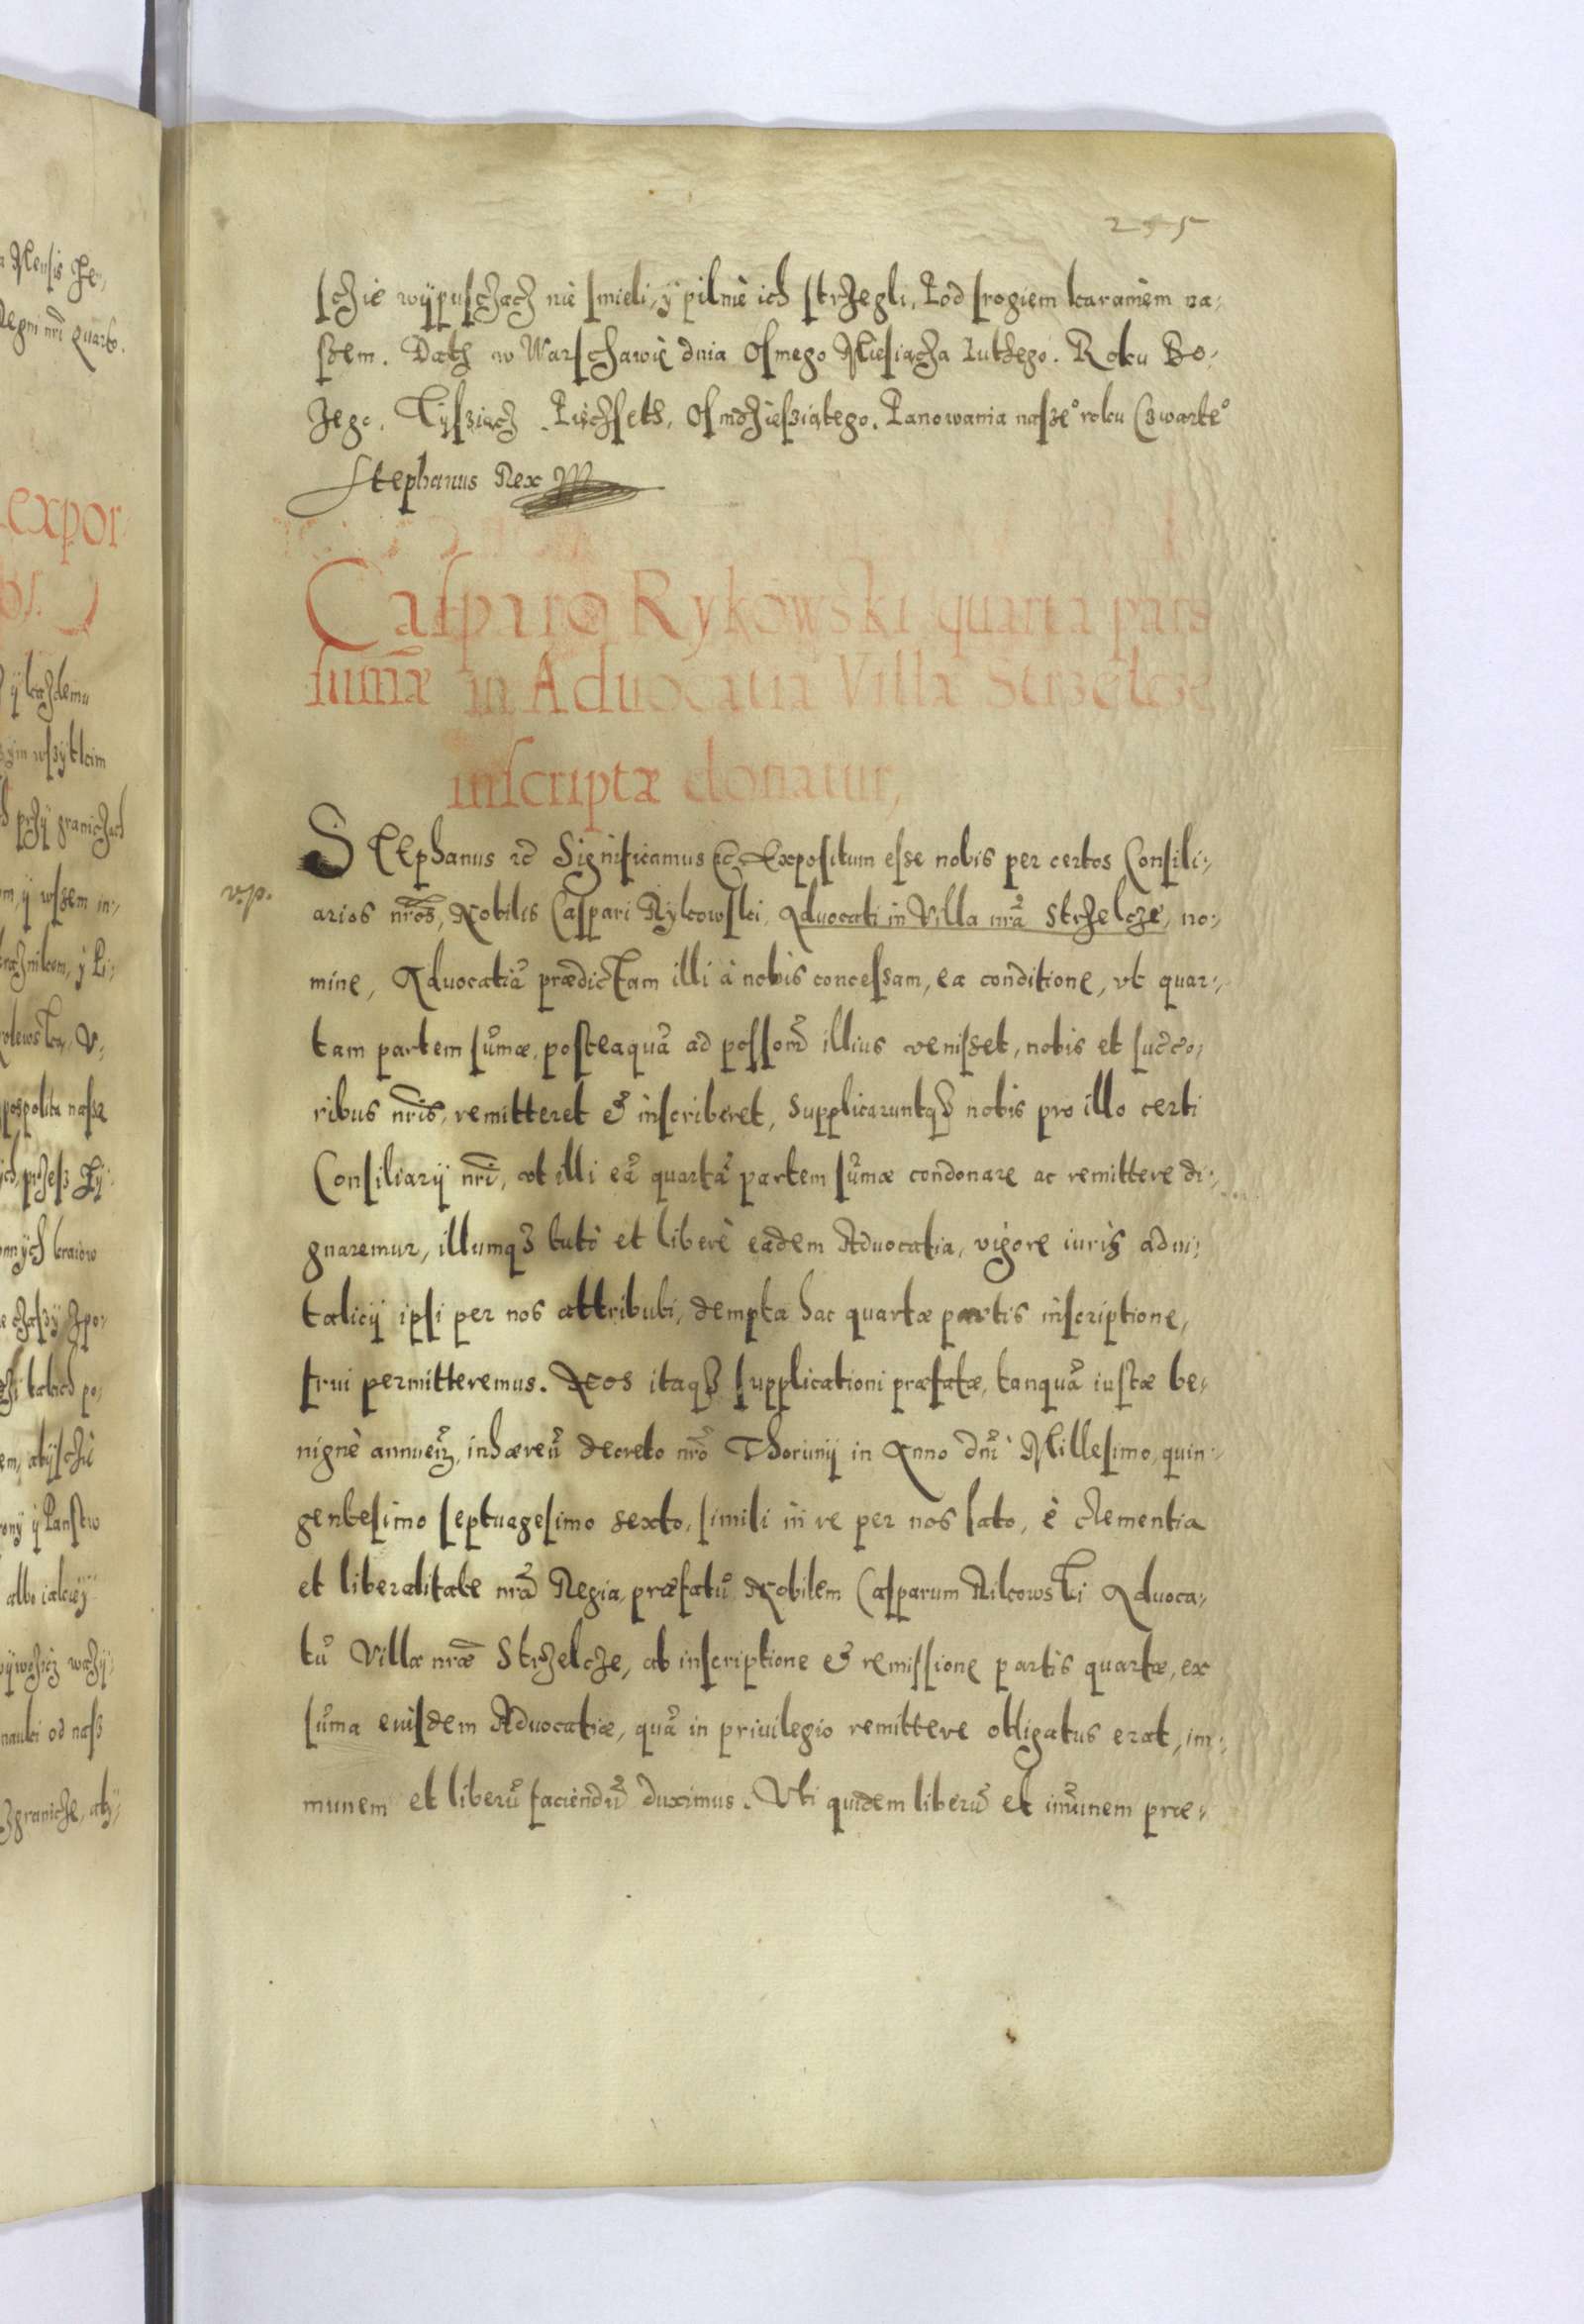 235
schie wÿpuschach nie smieli, ÿ pilnie ich strzegli, Pod srogiem karaniem na-
szem. Dath w Warschawie dnia Osmego Miesiącha Luthego. Roku Bo-
zego, Tyssiąch Pięchseth, Osmdziesziątego. Panowania nasze° roku Czwarte°
Stephanus Rex
Casparo Rykowski quarta pars
sum̃æ in Aduocatia Villæ Strzelcze
inscriptæ donatur,
STEphanus ꝛc Significamus ꝛc Expositum esse nobis per certos Consili-
v.p.
arios nr̃os, Nobilis Caspari Rykowski, Aduocati in Villa nr̃a Strzelcze, no-
mine, Aduocatiã prædictam illi à nobis concessam, ea conditione, vt quar-
tam partem sum̃æ, posteaquã ad possom̃ illius venisset, nobis et succo-
ribus nr̃is, remitteret & inscriberet, Supplicaruntqꝫ nobis pro illo certi
Consiliarij nr̃i, vt illi eã quartã partem sum̃æ condonare ac remittere di-
gnaremur, illumqꝫ tutò et liberè eadem Aduocatia, vigore iuris adui-
talicij ipsi per nos attributi, dempta hac quartæ partis inscriptione,
frui permitteremus. Nos itaqꝫ supplicationi præfatæ, tanquã iustæ be-
nignè annuen̄, inhæreñ decreto nr̃o Thorunij in Anno dnĩ Millesimo, quin-
gentesimo septuagesimo sexto, simili in re per nos lato, è clementia
et liberalitate nr̃a Regia, præfatũ Nobilem Casparum Rikowski Aduoca-
tũ Villæ nr̃æ Strzelcze, ab inscriptione & remissione partis quartæ, ex
sum̃a euisdem Aduocatiæ, quã in priuilegio remittere obligatus erat, im-
munem et liberũ faciendũ duximus. Vti quidem liberũ et im̃unem præ-